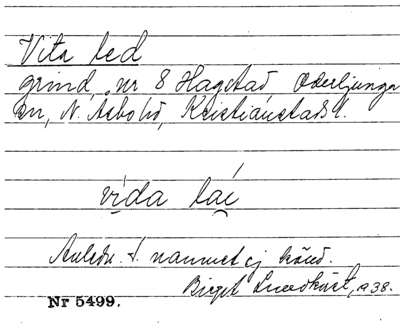 Vita led
grind, nr 8 Hagstad, Oderljunga
sn, N. Åsbo hd, Kristianstads l.
vída laí
Anledn. t. namnet ej känd.
Birgit Lundkvist, 1938.
Nr 5499.